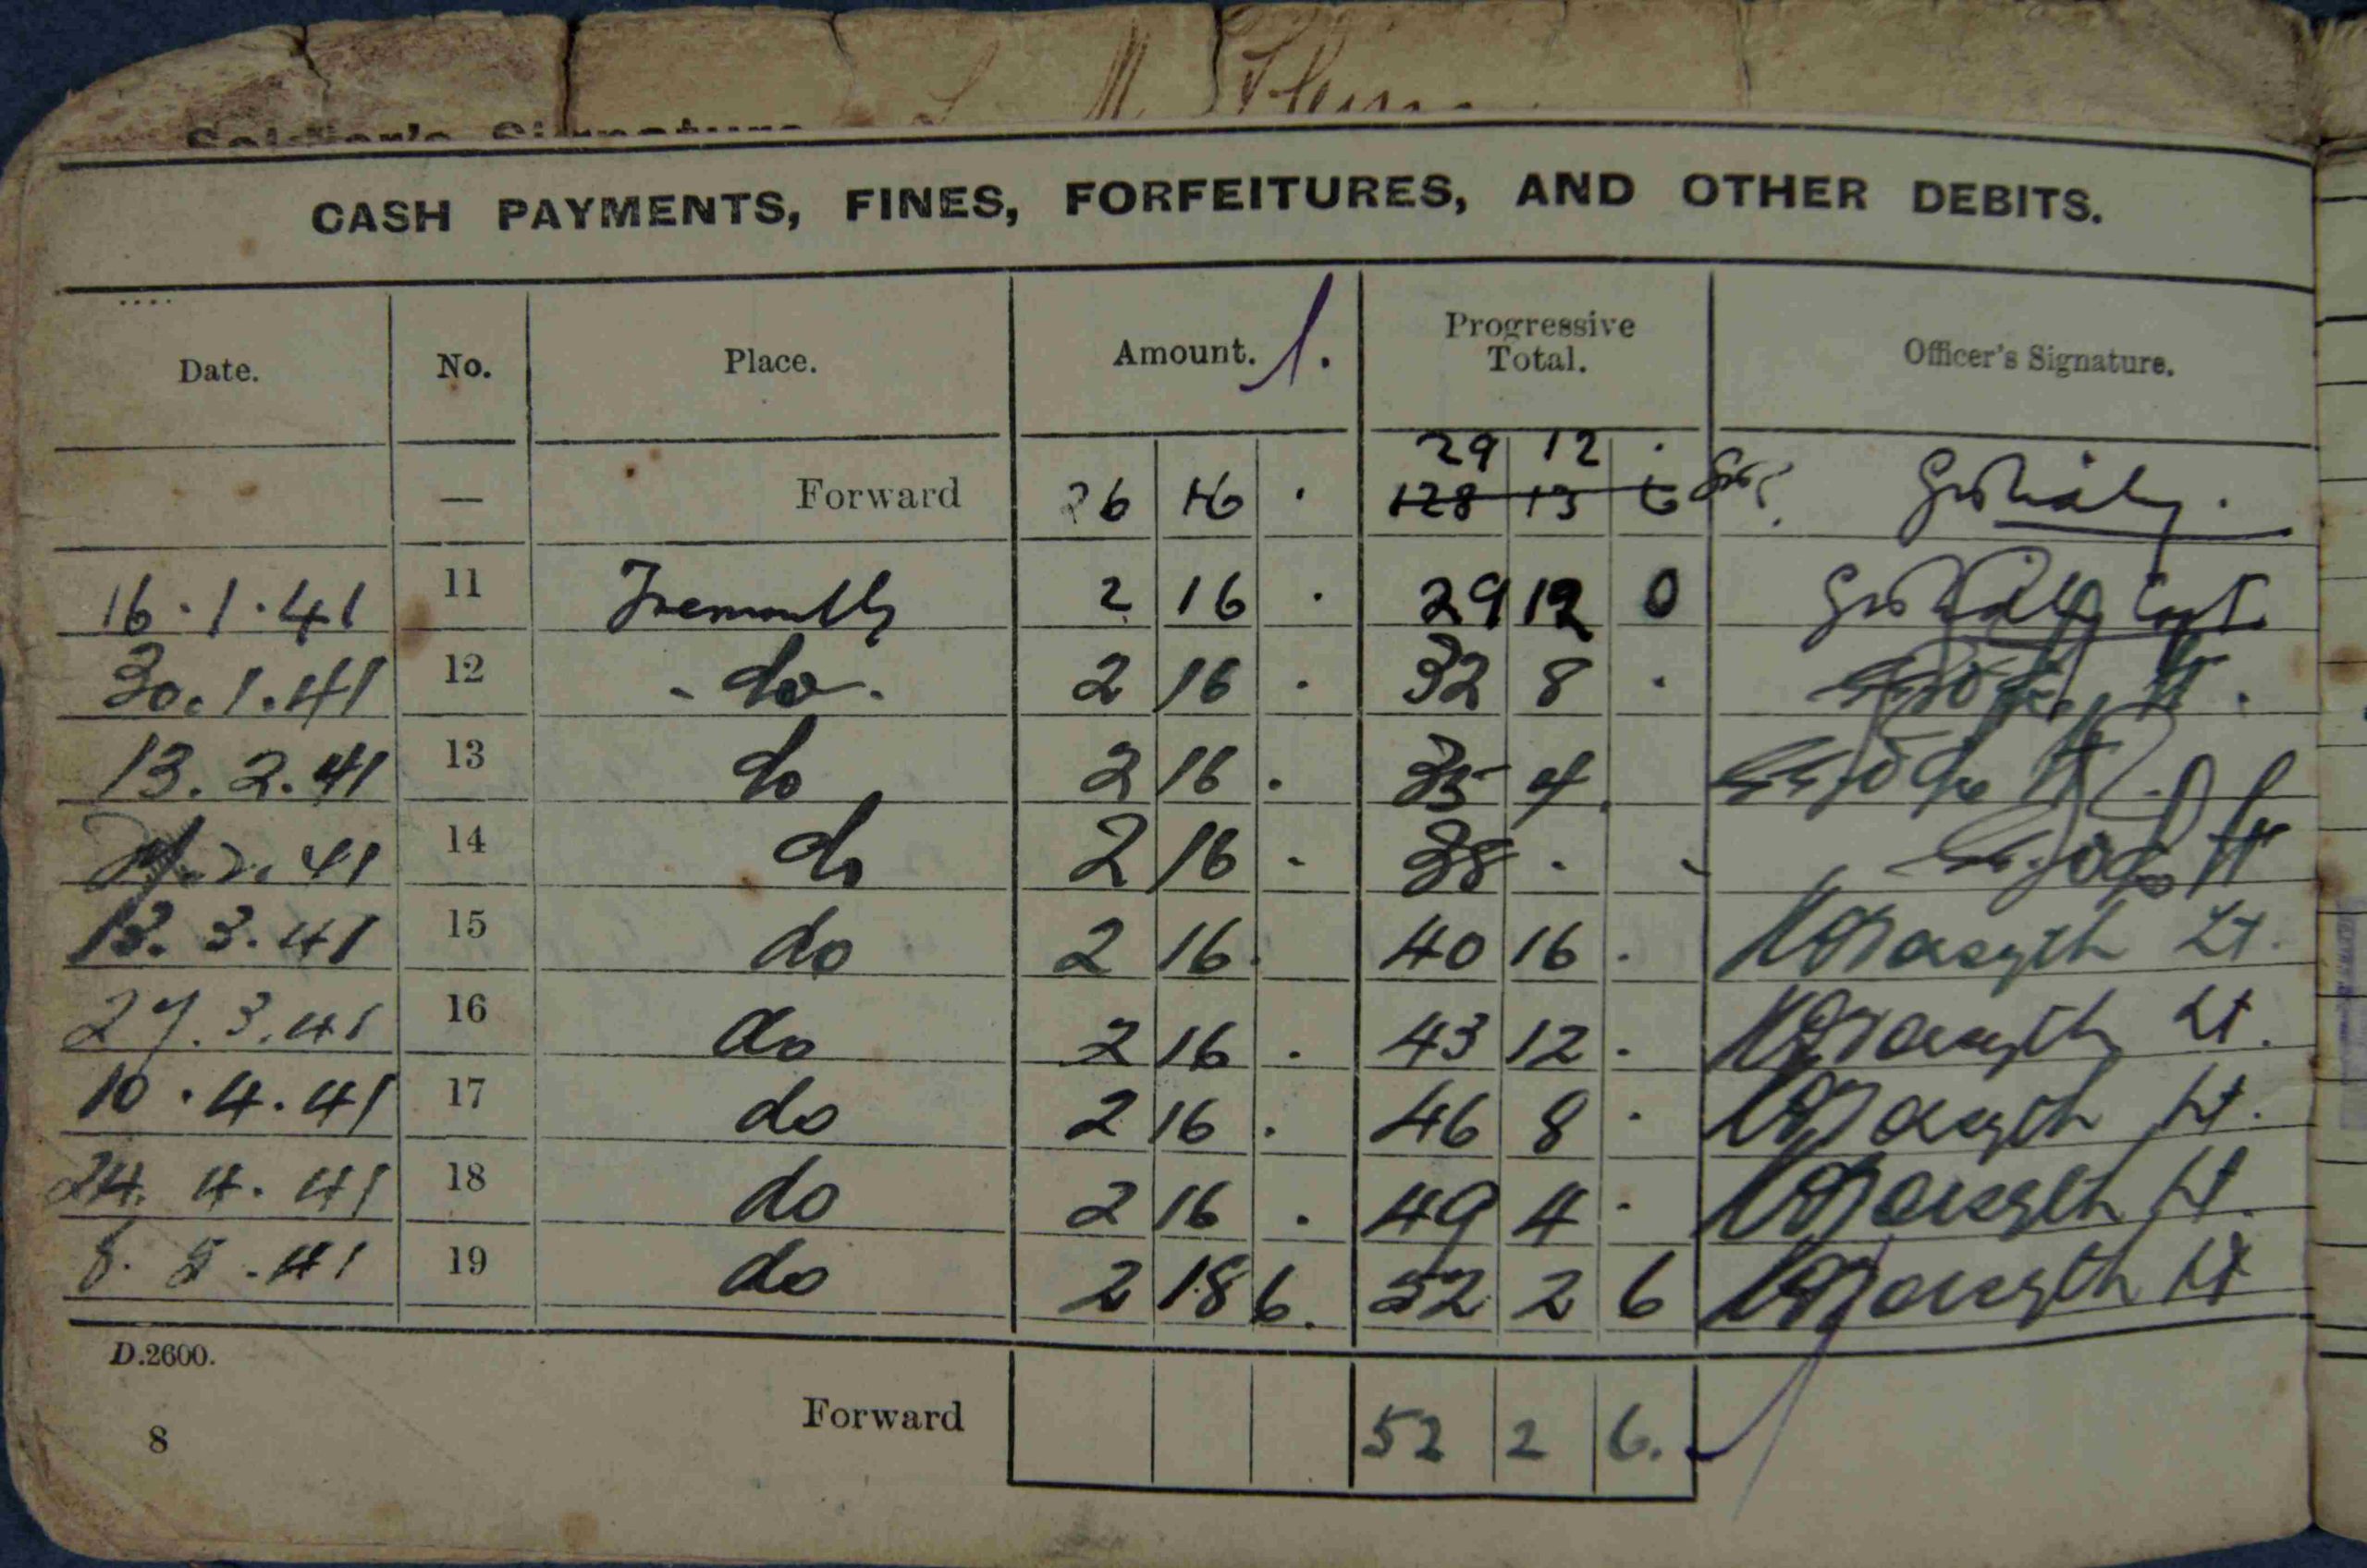 Soldier's Signature
CASH PAYMENTS, FINES, FORFEITURES, AND OTHER DEBITS.
Date. No. Place. Amount. 1. Progressive Total. Officer's Signature.
29 12 .
— Forward 26 16 . 128 13 6
16.1.41 11 2 16 . 29 12 0 Capt.
30.1.41 12 - do - 2 16 . 32 8 . Lt.
13.2.41 13 do 2 16 . 35 4 . Lt
2.41 14 do 2 16 - 38 . - Lt
13.3.41 15 do 2 16 . 40 16 . Forsyth Lt.
27.3.41 16 do 2 16 . 43 12 . Forsyth Lt.
10.4.41 17 do 2 16 . 46 8 . Forsyth Lt.
24.4.41 18 do 2 16 . 49 4 . Forsyth Lt.
8.5.41 19 do 2 18 6. 52 2 6 Forsyth Lt
D.2600.
Forward 52 2 6.
8